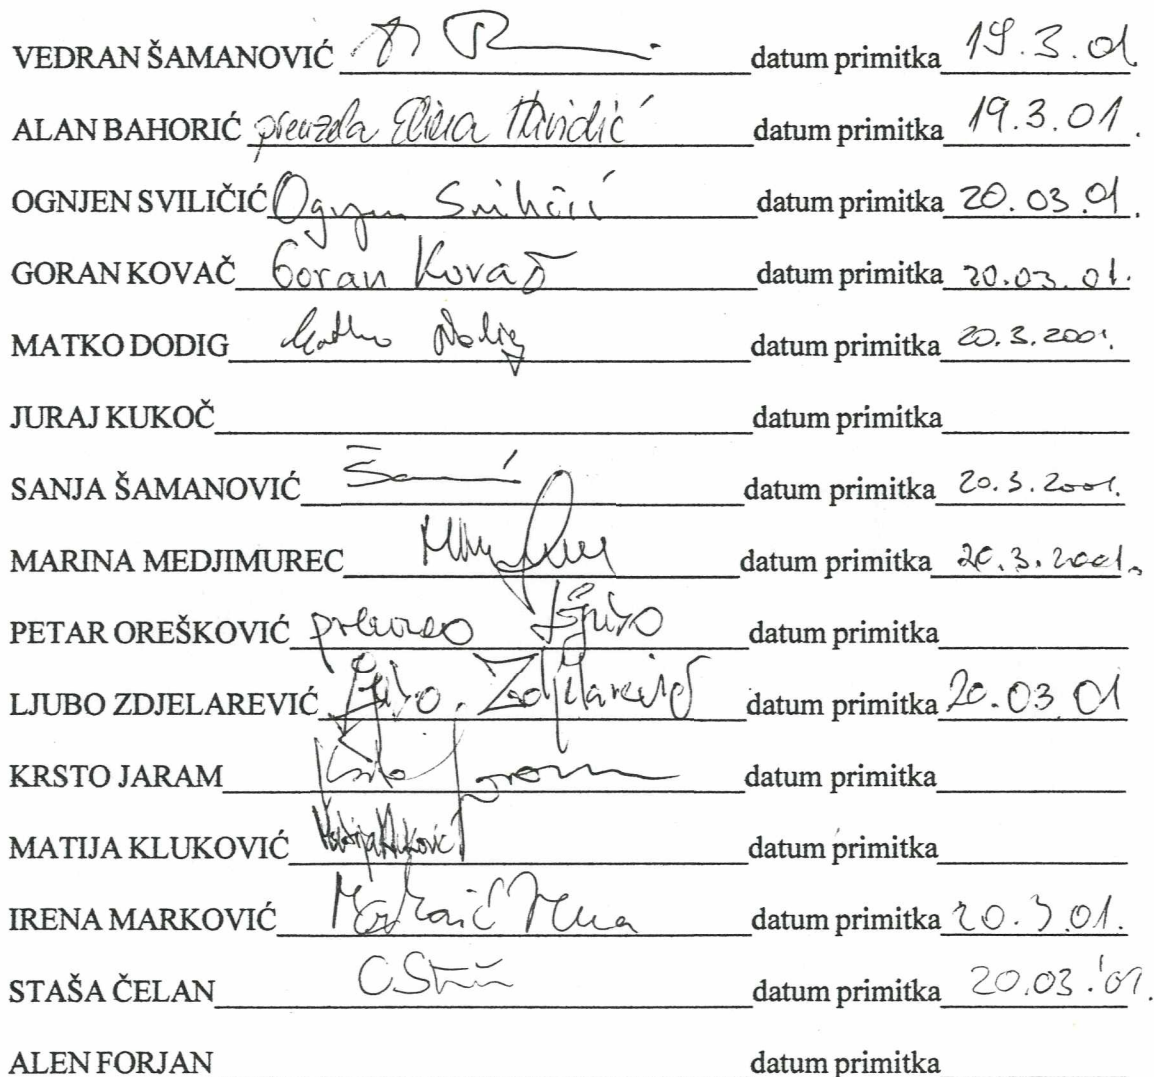 VEDRAN ŠAMANOVIĆ datum primitka 19.3.01.
ALAN BAHORIĆ preuzela datum primitka 19.3.01.
OGNJEN SVILIČIĆ Ognjen Sviličić datum primitka 20.03.01.
GORAN KOVAČ Goran Kovač datum primitka 20.03.01.
MATKO DODIG Matko Dodig datum primitka 20.3.2001.
JURAJ KUKOČ datum primitka
SANJA ŠAMANOVIĆ datum primitka 20.3.2001.
MARINA MEDJIMUREC datum primitka 20.3.2001.
PETAR OREŠKOVIĆ preuzeo datum primitka
LJUBO ZDJELAREVIĆ Ljubo Zdjelarević datum primitka 20.03.01
KRSTO JARAM Krsto Jaram datum primitka
MATIJA KLUKOVIĆ Matija Kluković datum primitka
IRENA MARKOVIĆ datum primitka 20.3.01.
STAŠA ČELAN datum primitka 20.03.'01.
ALEN FORJAN datum primitka